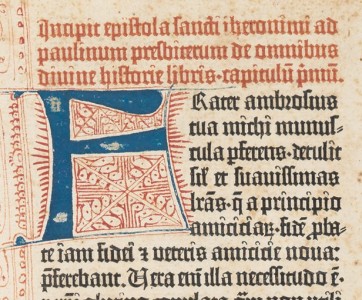 Incipit epistola sancti iheronimi ad
paulinum presbiterum de omnibus
divine historie libris·capitulū p̄mū.
Frater ambrosius
tua michi munus-
cula ꝑferens·detulit
sil̄ et suavissimas
lr̄as·q̄ a principio
amiciciaꝝ·fidē ꝓba-
te iam fidei ⁊ veteris amicicie nova:
ꝑferebant. Vera em̄ illa necessitudo ē·